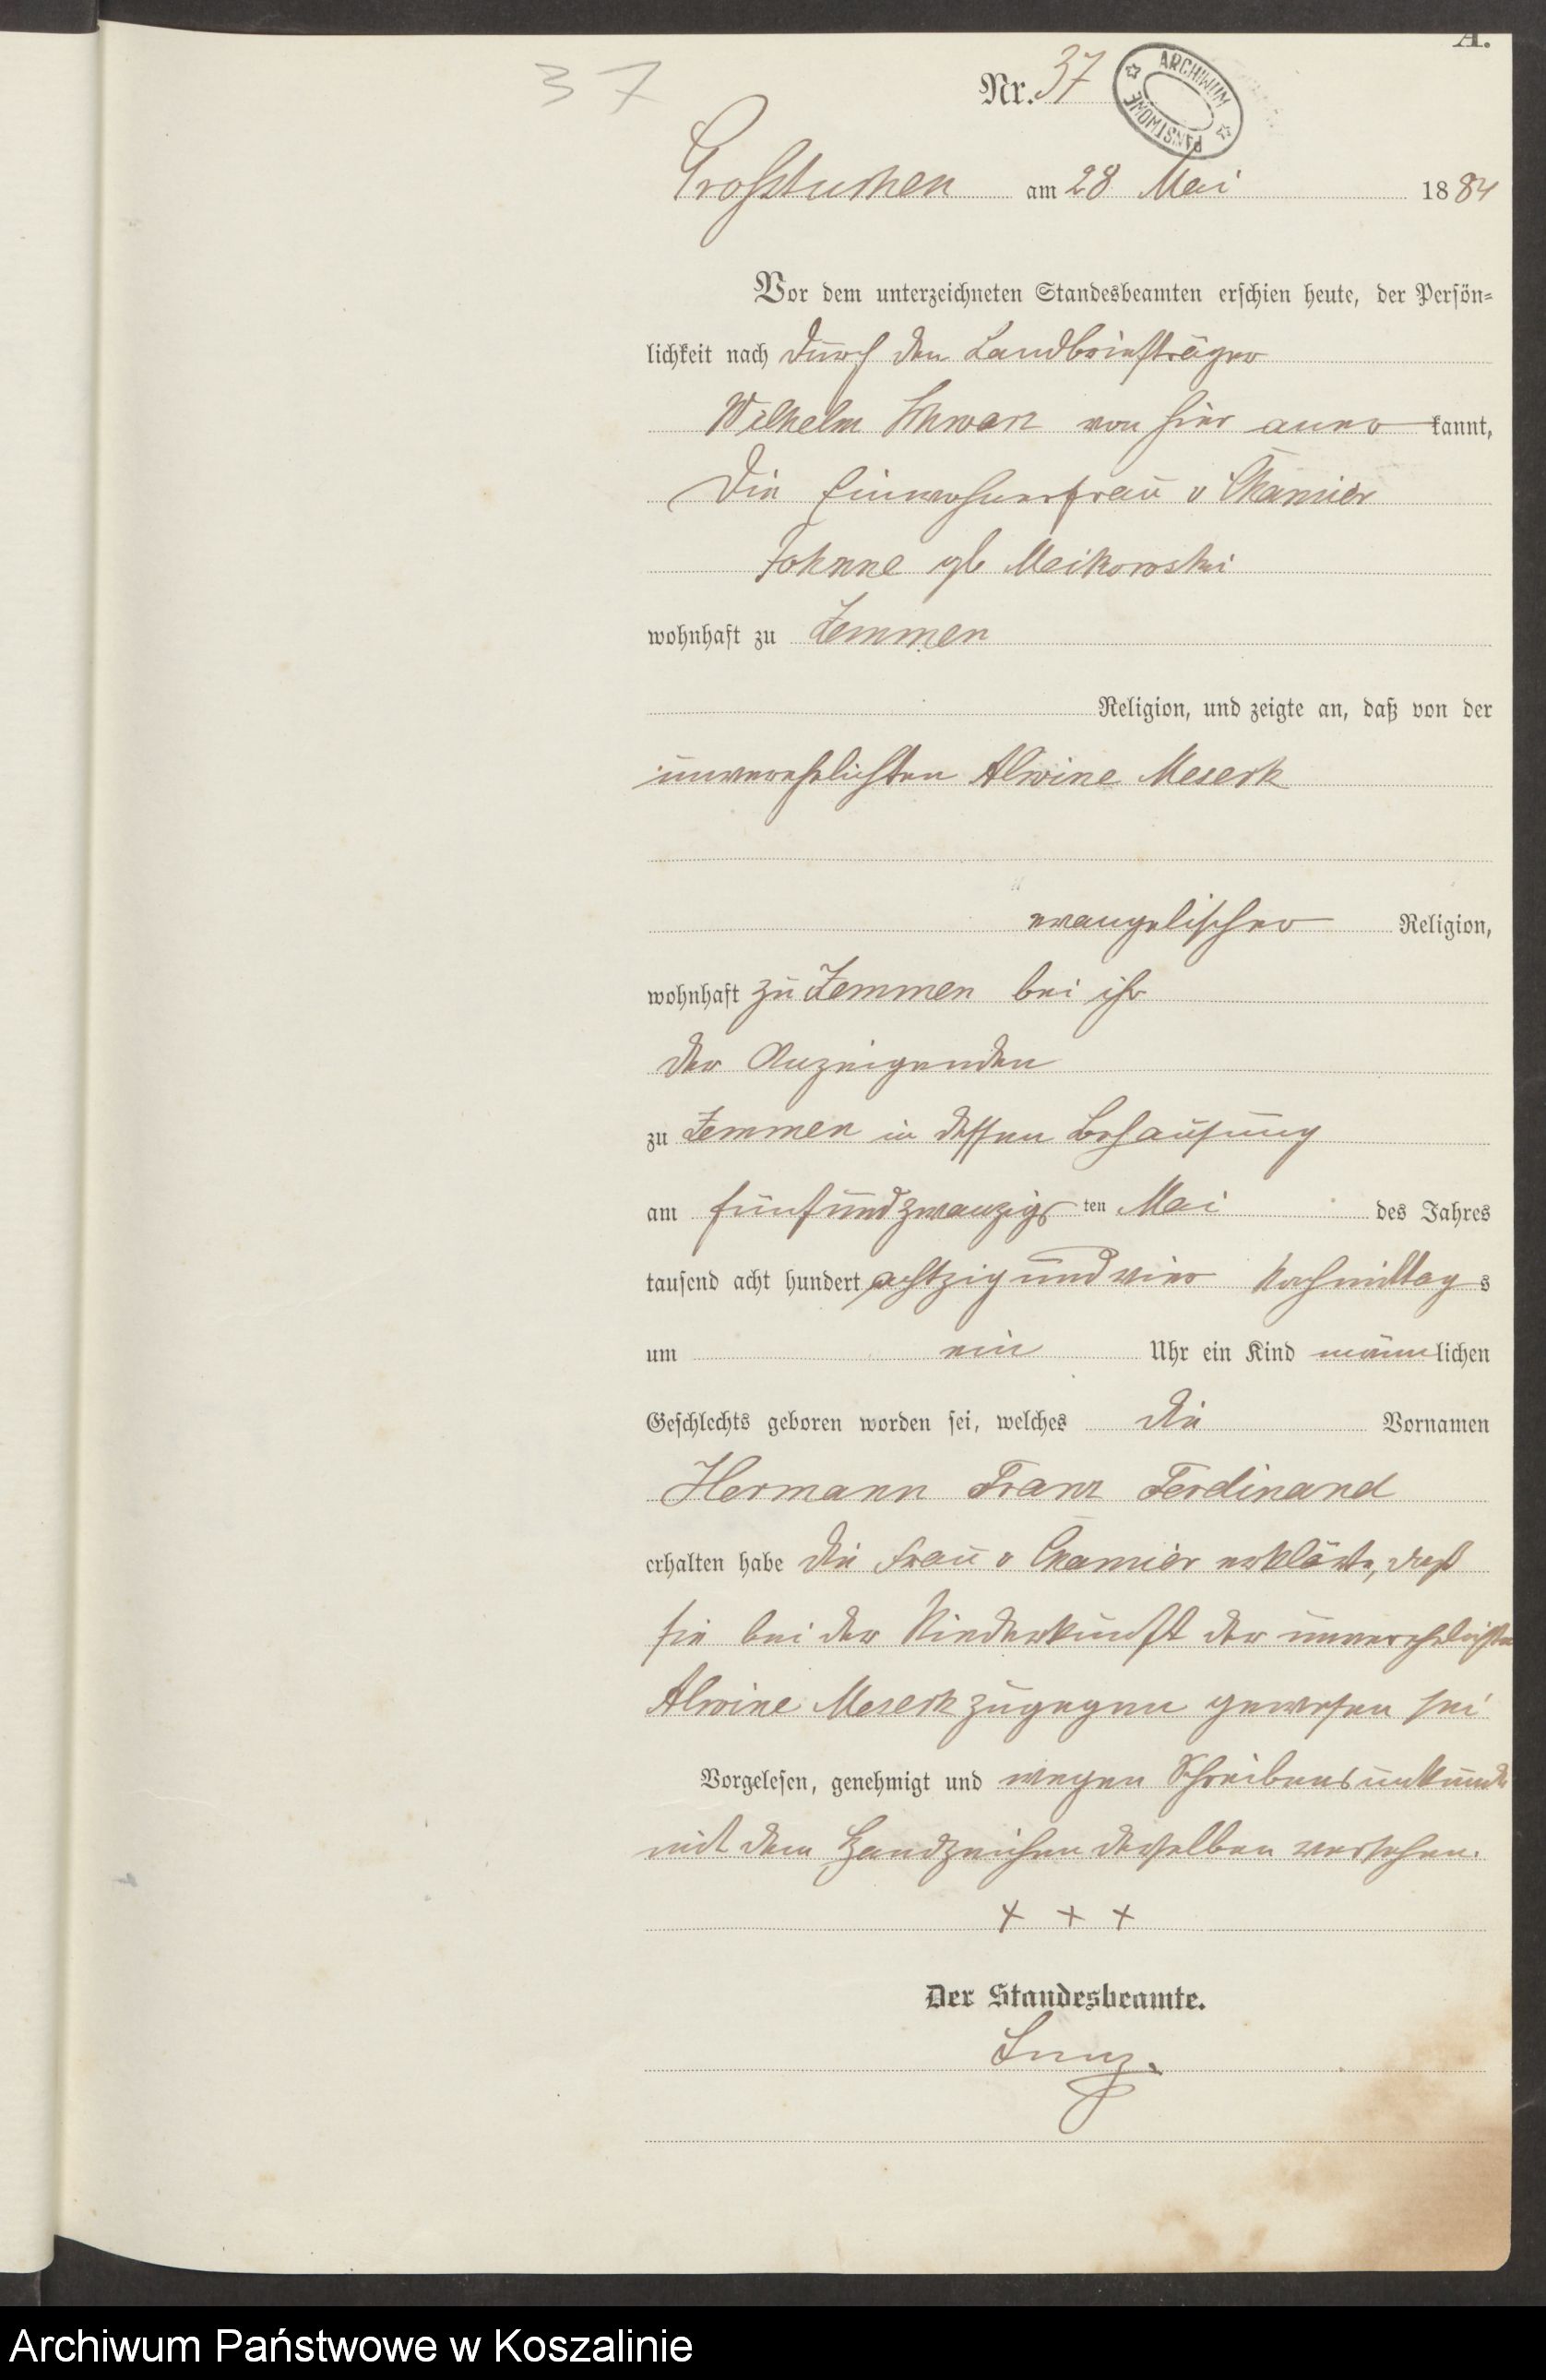 A.
37
Nr. 37
ARCHIWUM PAŃSTWOWE
Großtuchen am 28 Mai 1884
Vor dem unterzeichneten Standesbeamten erschien heute, der Persön-
lichkeit nach durch den Landbriefträger
Wilhelm Schwarz von hier aner kannt,
die Einwohnerfrau v Chamier
Johnne gb Meikowski
wohnhaft zu Zemmen
Religion, und zeigte an, daß von der
unverehelichten Alwine Meserk
evangelischer Religion,
wohnhaft zu Zemmen bei ihr
der Anzeigenden
zu Zemmen in dessen Behausung
am fünfundzwanzigs ten Mai des Jahres
tausend acht hundert achtzig und vier Nachmittag s
um ein Uhr ein Kind männ lichen
Geschlechts geboren worden sei, welches die Vornamen
Hermann Franz Ferdinand
erhalten habe die Frau v Chamier erklärte, daß
sie bei der Niederkunft der unverehelichten
Alwine Meserk zugegen gewesen sei
Vorgelesen, genehmigt und wegen Schreibensunkunde
mit dem Handzeichen derselben versehen.
+ + +
Der Standesbeamte.
Archiwum Państwowe w Koszalinie